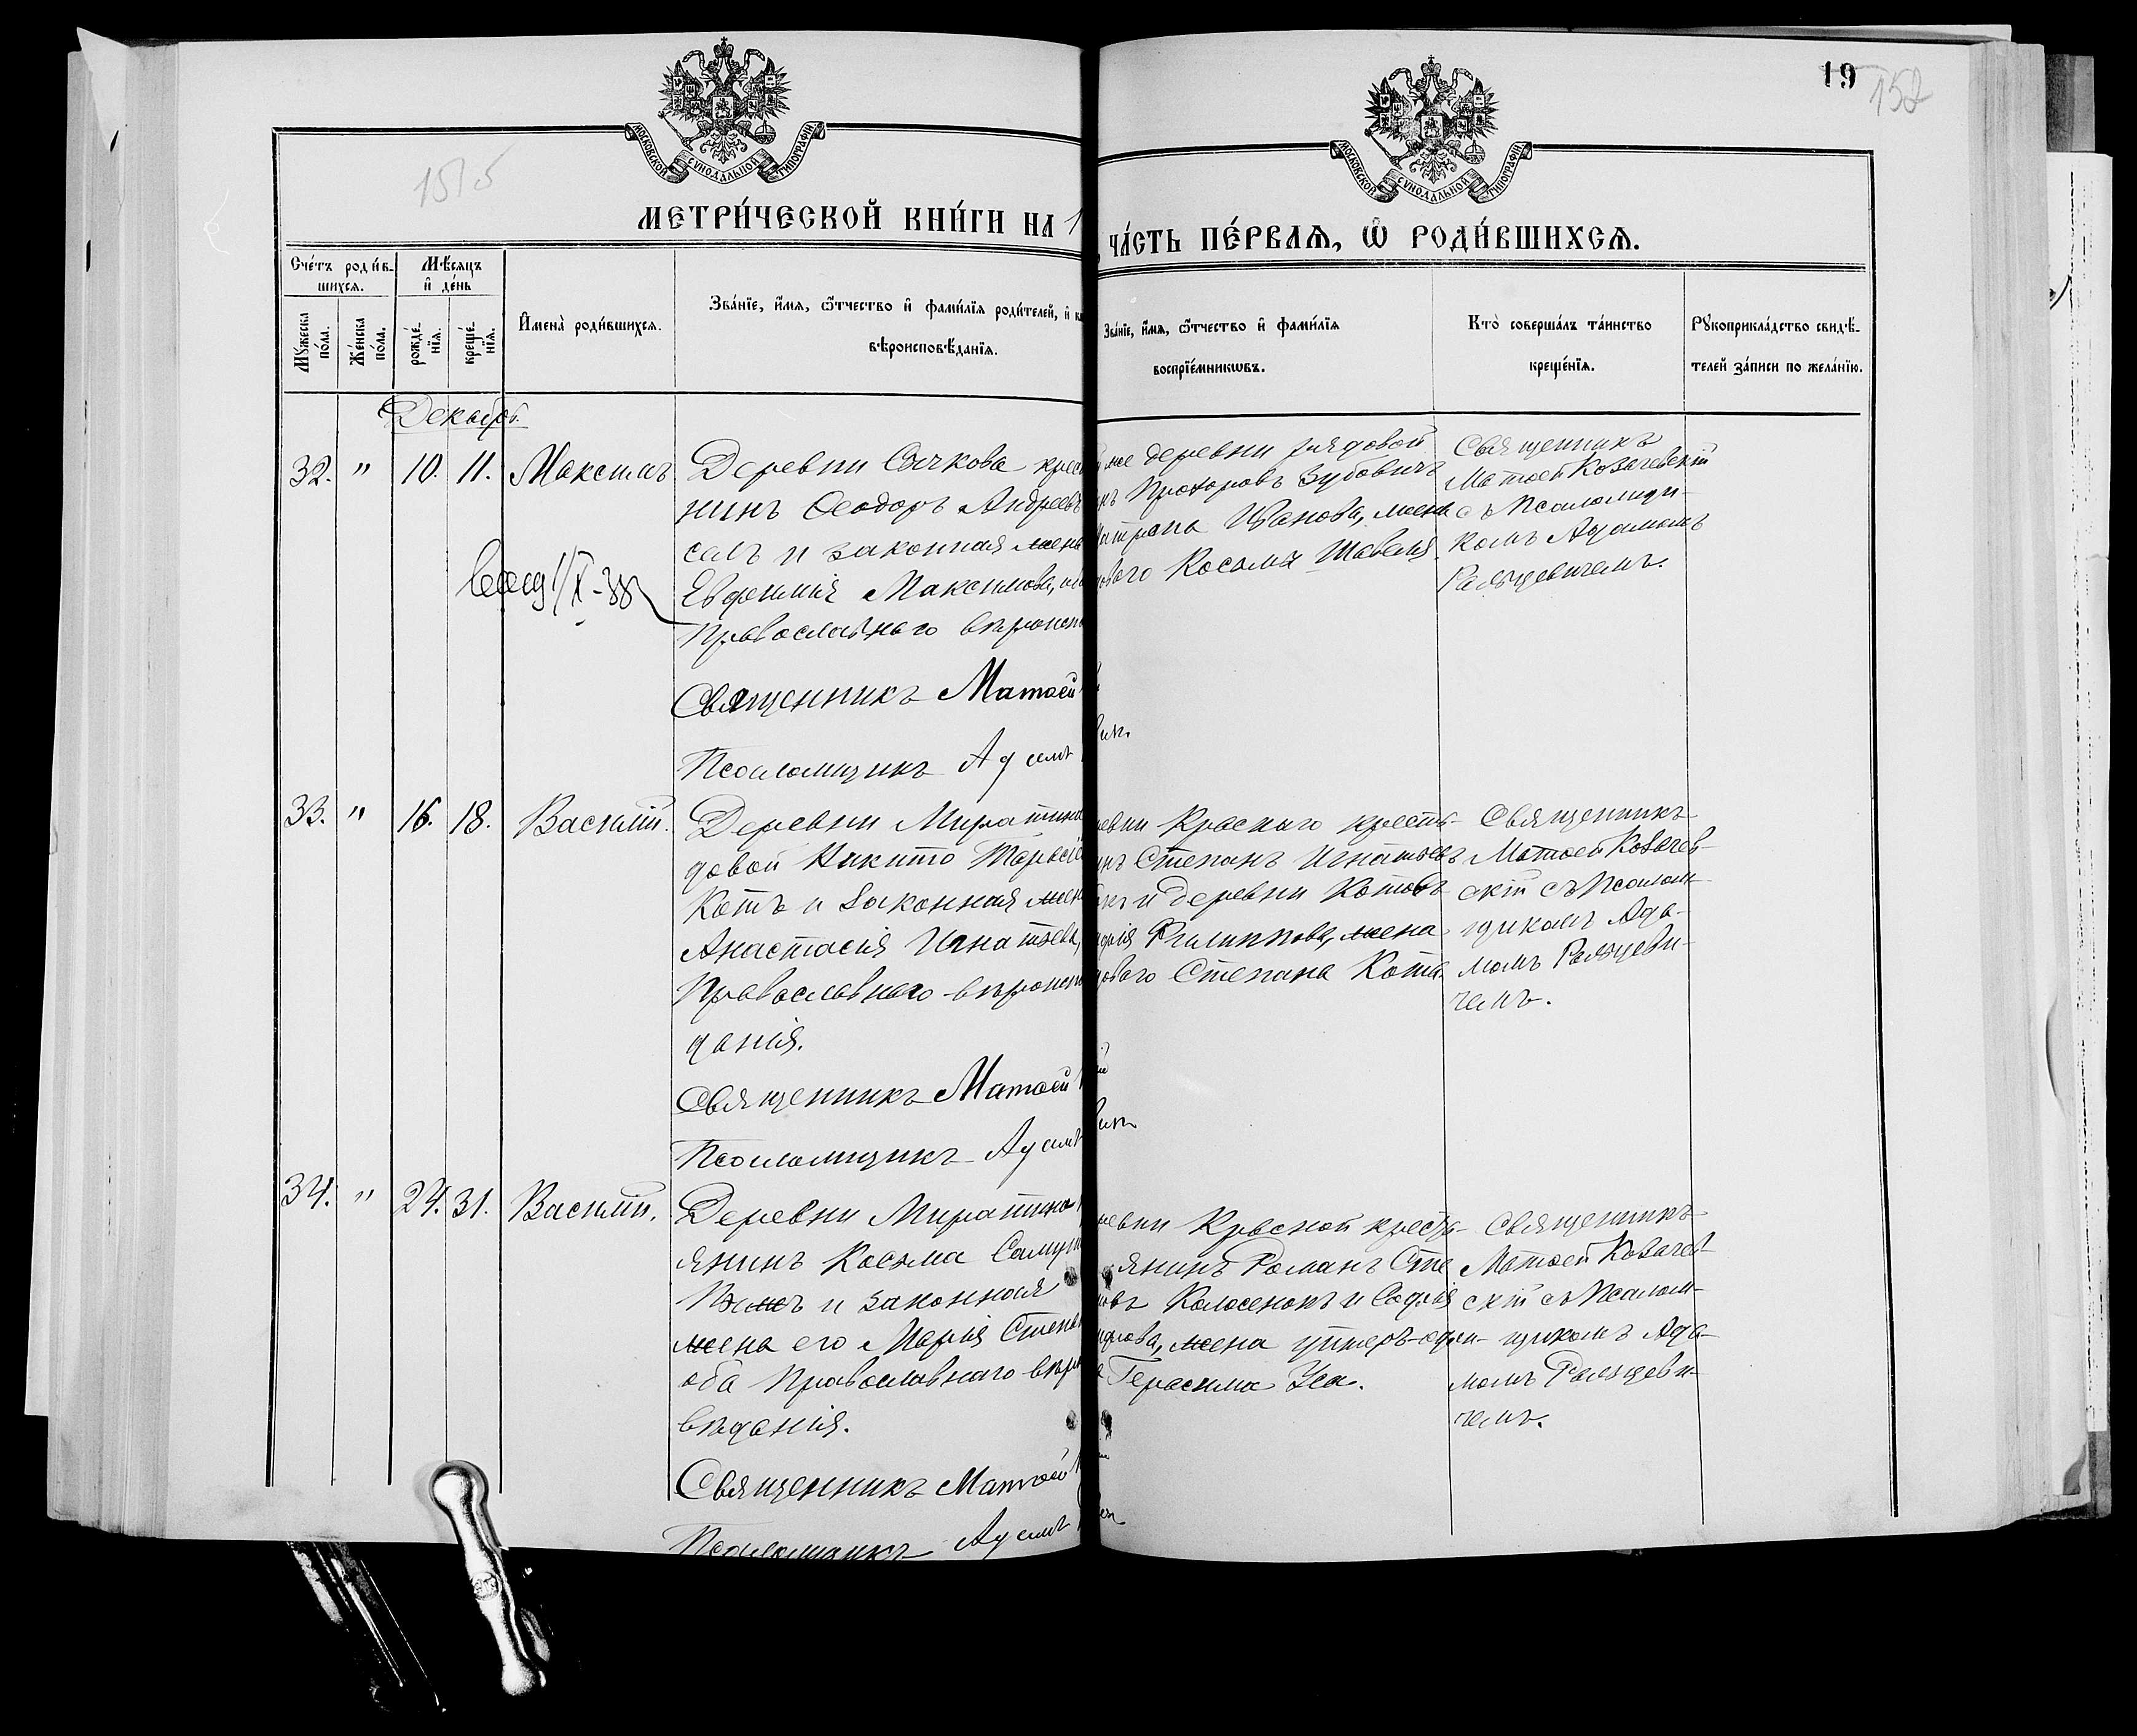 19
152
МОСКОВСКОЙ СУНОДАЛЬНОЙ ТИПОГРАФІИ
МОСКОВСКОЙ СУНОДАЛЬНОЙ ТИПОГРАФІИ
МЕТРИ́ЧЕСКОЙ КНИ́ГИ НА 1
ЧА́СТЬ ПЕ́РВАЯ, Ѡ РОДИ́ВШИХСЯ.
Сче́тъ роди́в-
шихся.
Мѣ́сяцъ
и҆ де́нь
Мꙋжеска по́ла.
Же́нска по́ла.
рожде́-
нїя.
креще́-
нїя.
И҆мена̀ роди́вшихся.
Зва́нїе, и҆́мя, ѻ҆́тчество и҆ фами́лїя роди́телей, и҆
вѣроисповѣ́данїя.
Зва́нїе, и҆́мя, ѻ҆́тчество и҆ фами́лїя
воспрїе́мникѡвъ.
Кто̀ соверша́лъ та́инство
креще́нїя.
Рꙋкоприкла́дство свидѣ́-
телей за́писи по жела́нїю.
Декабрь.
32. " 10. 11. Максимъ
Деревни Сачкова крест
нинъ Ѳеодоръ Андреевъ
самъ и законная жена
Евфимія Максимова, об
Православнаго вѣроисп
Священникъ Матѳей
Псаломщикъ Адамъ
деревни рядовой
Прохоровъ Зубовичъ
Иванова, жена
Косьмы Шавеля.
Священникъ
Матѳей Козачевскій
съ Псаломщи-
комъ Адамомъ
Ральцевичемъ.
33. " 16. 18. Василій.
Деревни Миратино
довой Никита Тарасіе
Котъ и законная жен
Анастасія Игнатьева,
Православнаго вѣроиспо
данія.
Священникъ Матѳей
Псаломщикъ Адамъ
Краснаго кресть-
Степанъ Игнатьевъ
и деревни Котовъ
Филиппова, жена
Степана Кота.
Священникъ
Матѳей Козачев-
скій съ Псалом-
щикомъ Ада-
момъ Ральцеви-
чемъ.
34. " 24. 31. Василій.
Деревни Миратино
янинъ Косьма
и законная
жена его Марія Степа
оба Православнаго вѣро
вѣданія.
Священникъ Матѳей
Псаломщикъ Адамъ
Красной кресть-
янинъ Романъ Сте
Колосенокъ и Софія
жена унтеръ-офи-
Герасима Уса.
Священникъ
Матѳей Козачев-
скій съ Псалом-
щикомъ Ада-
момъ Ральцеви-
чемъ.